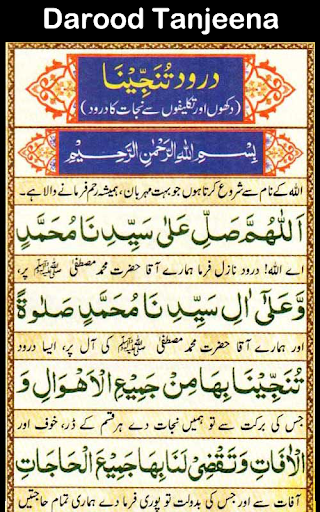 Darood Tanjeena
درود تُنَجِّیْنَا
(دکھوں اور تکلیفوں سے نجات کا درود)
بِسْمِ اللهِ الرَّحْمٰنِ الرَّحِيْمِ
الله کے نام سے شروع کرتا ہوں جو بہت مہربان، ہمیشہ رحم فرمانے والا ہے۔
اَللّٰهُمَّ صَلِّ عَلٰى سَيِّدِنَا مُحَمَّدٍ
اے الله! درود نازل فرما ہمارے آقا حضرت محمد مصطفیٰ ﷺ پر،
وَّعَلٰٓى اٰلِ سَيِّدِنَا مُحَمَّدٍ صَلٰوةً
اور ہمارے آقا حضرت محمد مصطفیٰ ﷺ کی آل پر، ایسا درود
تُنَجِّيْنَا بِهَا مِنْ جَمِيْعِ الْاَهْوَالِ وَ
جس کی برکت سے تو ہمیں نجات دے ہر قسم کے ڈر، خوف اور
الْاٰفَاتِ وَتَقْضِىْ لَنَا بِهَا جَمِيْعَ الْحَاجَاتِ
آفات سے اور جس کی بدولت تو پوری فرما دے ہماری تمام حاجتیں